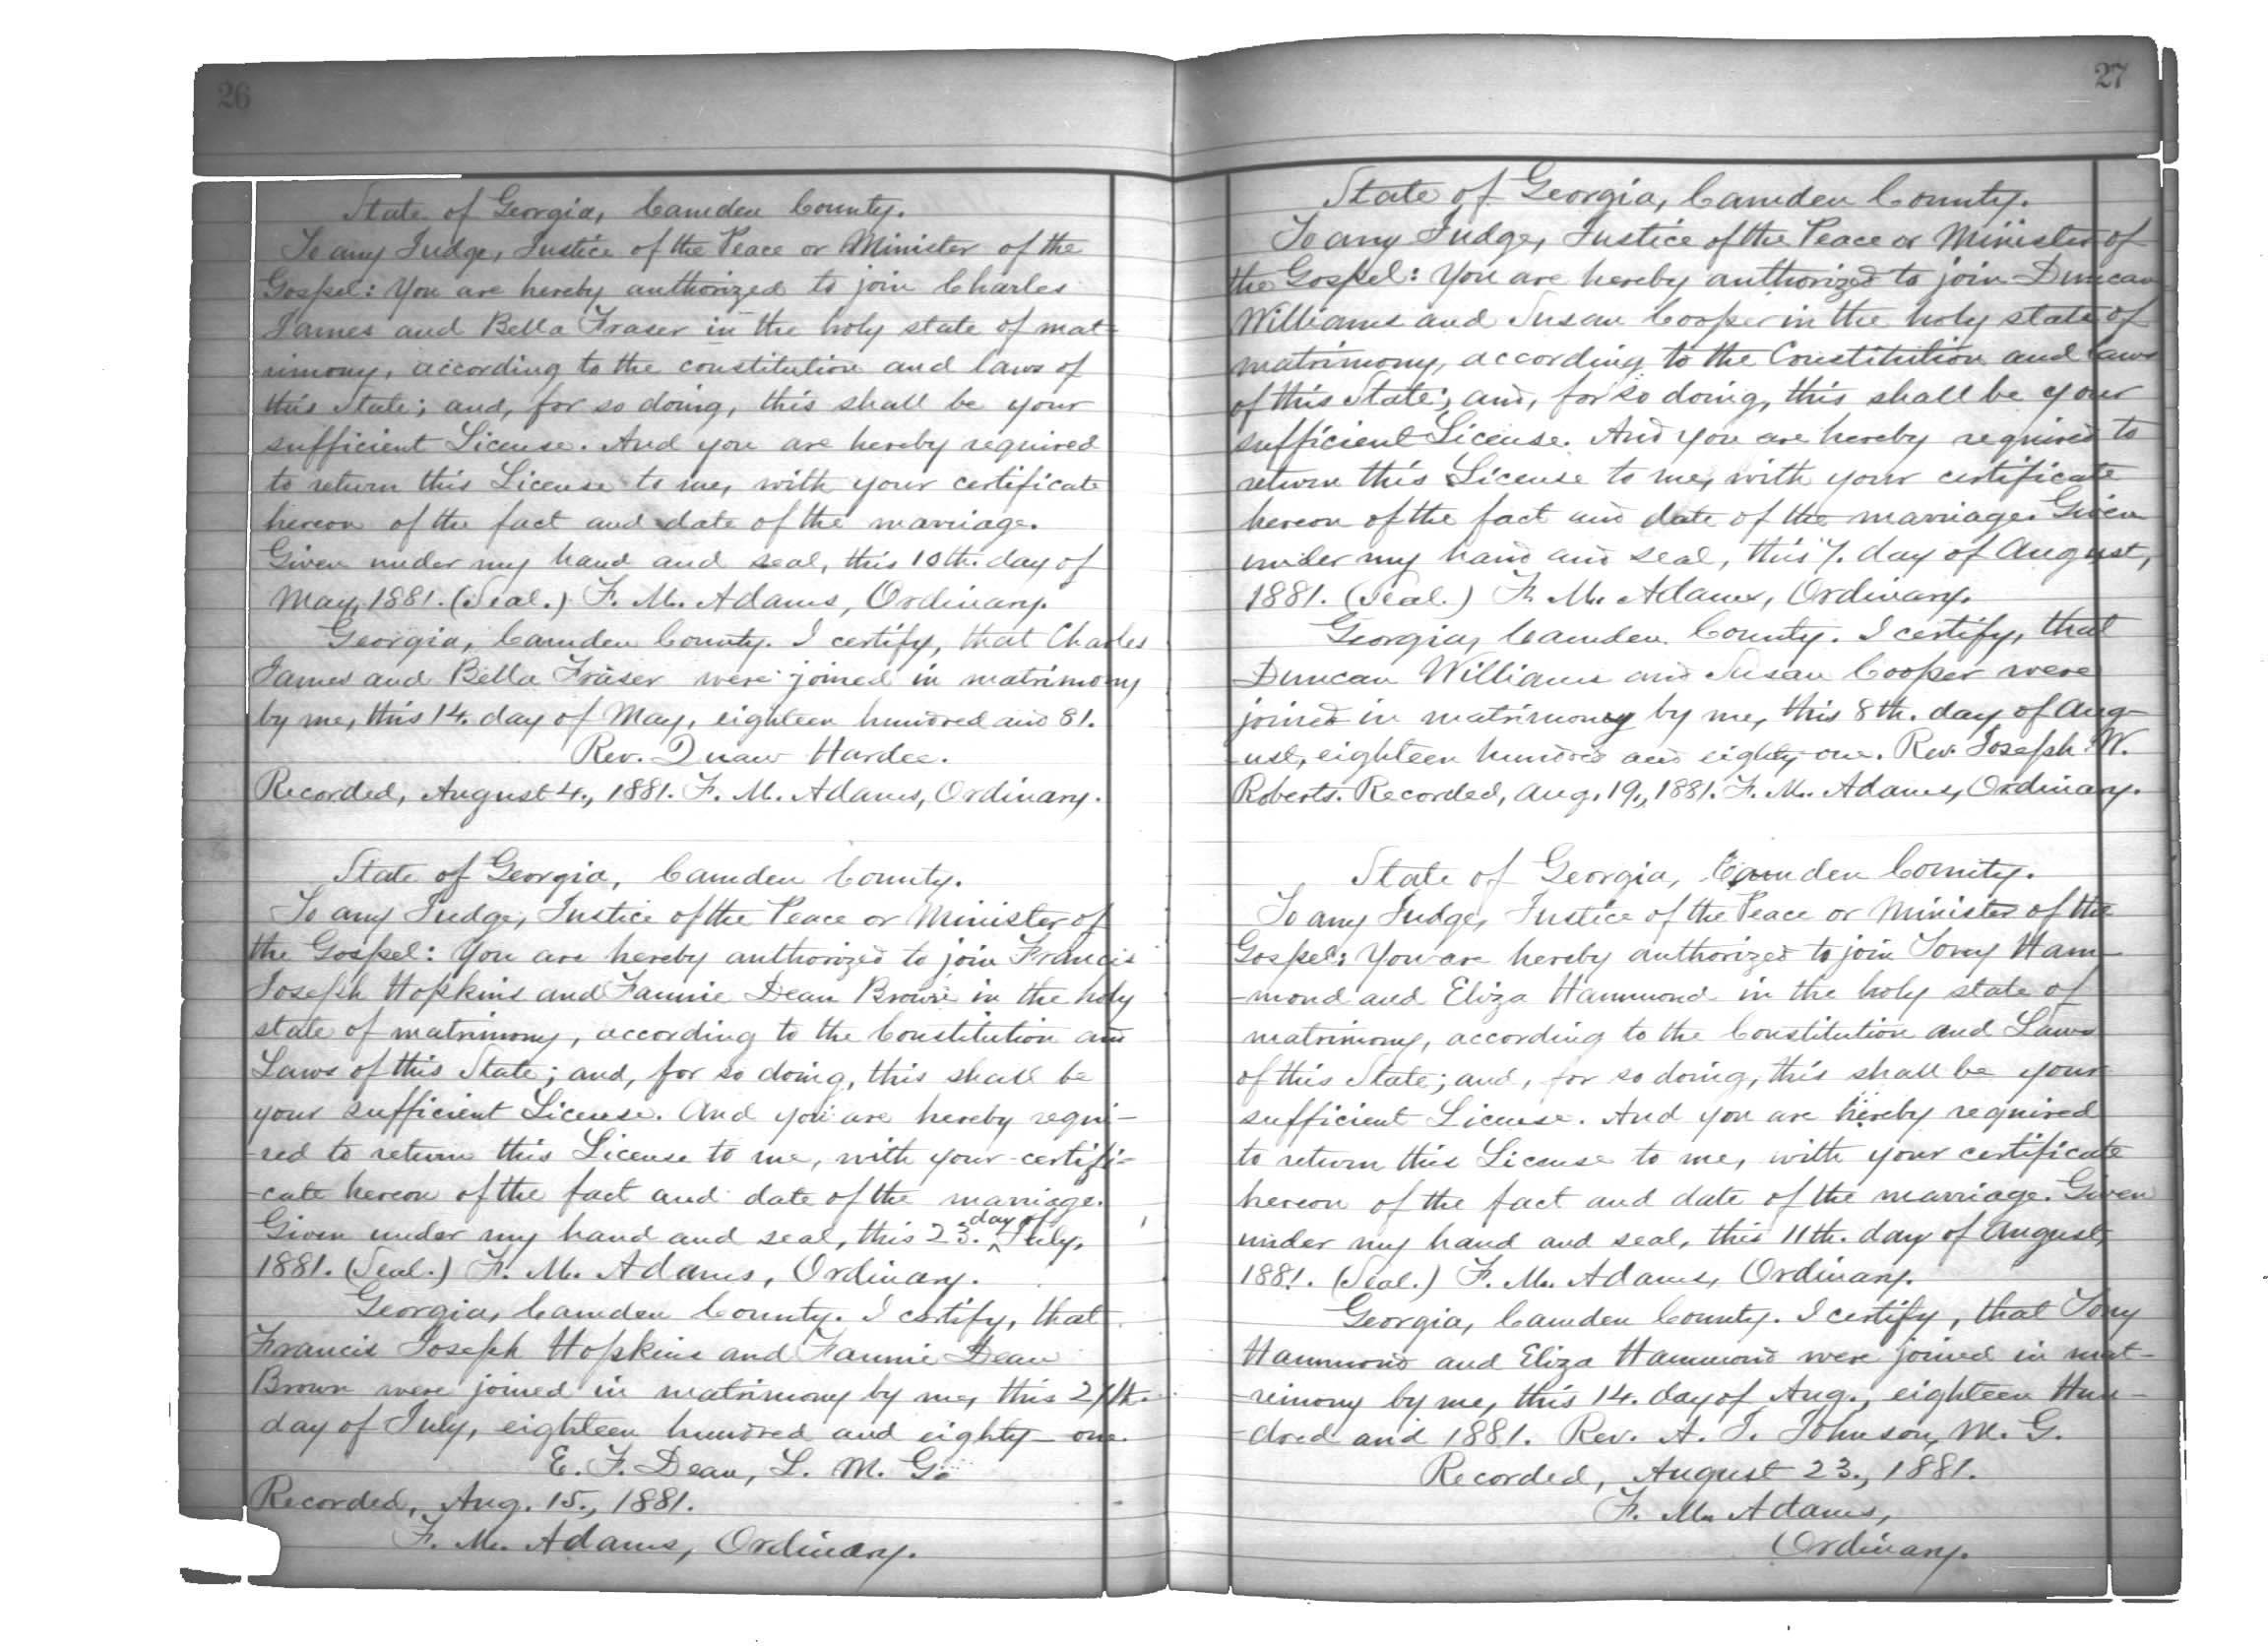 26
State of Georgia, Camden County.
To any Judge, Justice of the Peace or Minister of the
Gospel: You are hereby authorized to join Charles
James and Bella Fraser in the holy state of mat-
rimony, according to the constitution and laws of
this State; and, for so doing, this shall be your
sufficient License. And you are hereby required
to return this License to me, with your certificate
hereon of the fact and date of the marriage.
Given under my hand and seal, this 10th. day of
May, 1881. (Seal.) F. M. Adams, Ordinary.
Georgia, Camden County. I certify, that Charles
James and Bella Fraser were joined in matrimony
by me, this 14. day of May, eighteen hundred and 81.
Rev. Quaw Hardee.
Recorded, August 4., 1881. F. M. Adams, Ordinary.
State of Georgia, Camden County.
To any Judge, Justice of the Peace or Minister of
the Gospel: You are hereby authorized to join Francis
Joseph Hopkins and Fannie Dean Brown in the holy
state of matrimony, according to the Constitution and
Laws of this State; and, for so doing, this shall be
your sufficient License. And you are hereby requi-
-red to return this License to me, with your certifi-
-cate hereon of the fact and date of the marriage.
Given under my hand and seal, this 23. day of July,
1881. (Seal.) F. M. Adams, Ordinary.
Georgia, Camden County. I certify, that
Francis Joseph Hopkins and Fannie Dean
Brown were joined in matrimony by me, this 27th.
day of July, eighteen hundred and eighty-one.
E. F. Dean, L. M. G.
Recorded, Aug. 15., 1881.
F. M. Adams, Ordinary.
27
State of Georgia, Camden County.
To any Judge, Justice of the Peace or Minister of
the Gospel: You are hereby authorized to join Duncan
Williams and Susan Cooper in the holy state of
matrimony, according to the Constitution and laws
of this State; and, for so doing, this shall be your
sufficient License. And you are hereby required to
return this License to me, with your certificate
hereon of the fact and date of the marriage. Given
under my hand and seal, this 7. day of August,
1881. (Seal.) F. M. Adams, Ordinary.
Georgia, Camden County. I certify, that
Duncan Williams and Susan Cooper were
joined in matrimony by me, this 8th. day of Aug-
-ust, eighteen hundred and eighty-one. Rev. Joseph W.
Roberts. Recorded, Aug. 19., 1881. F. M. Adams, Ordinary.
State of Georgia, Camden County.
To any Judge, Justice of the Peace or Minister of the
Gospel: You are hereby authorized to join Tony Ham-
-mond and Eliza Hammond in the holy state of
matrimony, according to the Constitution and Laws
of this State; and, for so doing, this shall be your
sufficient License. And you are hereby required
to return this License to me, with your certificate
hereon of the fact and date of the marriage. Given
under my hand and seal, this 11th. day of August,
1881. (Seal.) F. M. Adams, Ordinary.
Georgia, Camden County. I certify, that Tony
Hammond and Eliza Hammond were joined in mat-
-rimony by me, this 14. day of Aug., eighteen Hun-
-dred and 1881. Rev. A. J. Johnson, M. G.
Recorded, August 23., 1881.
F. M. Adams,
Ordinary.